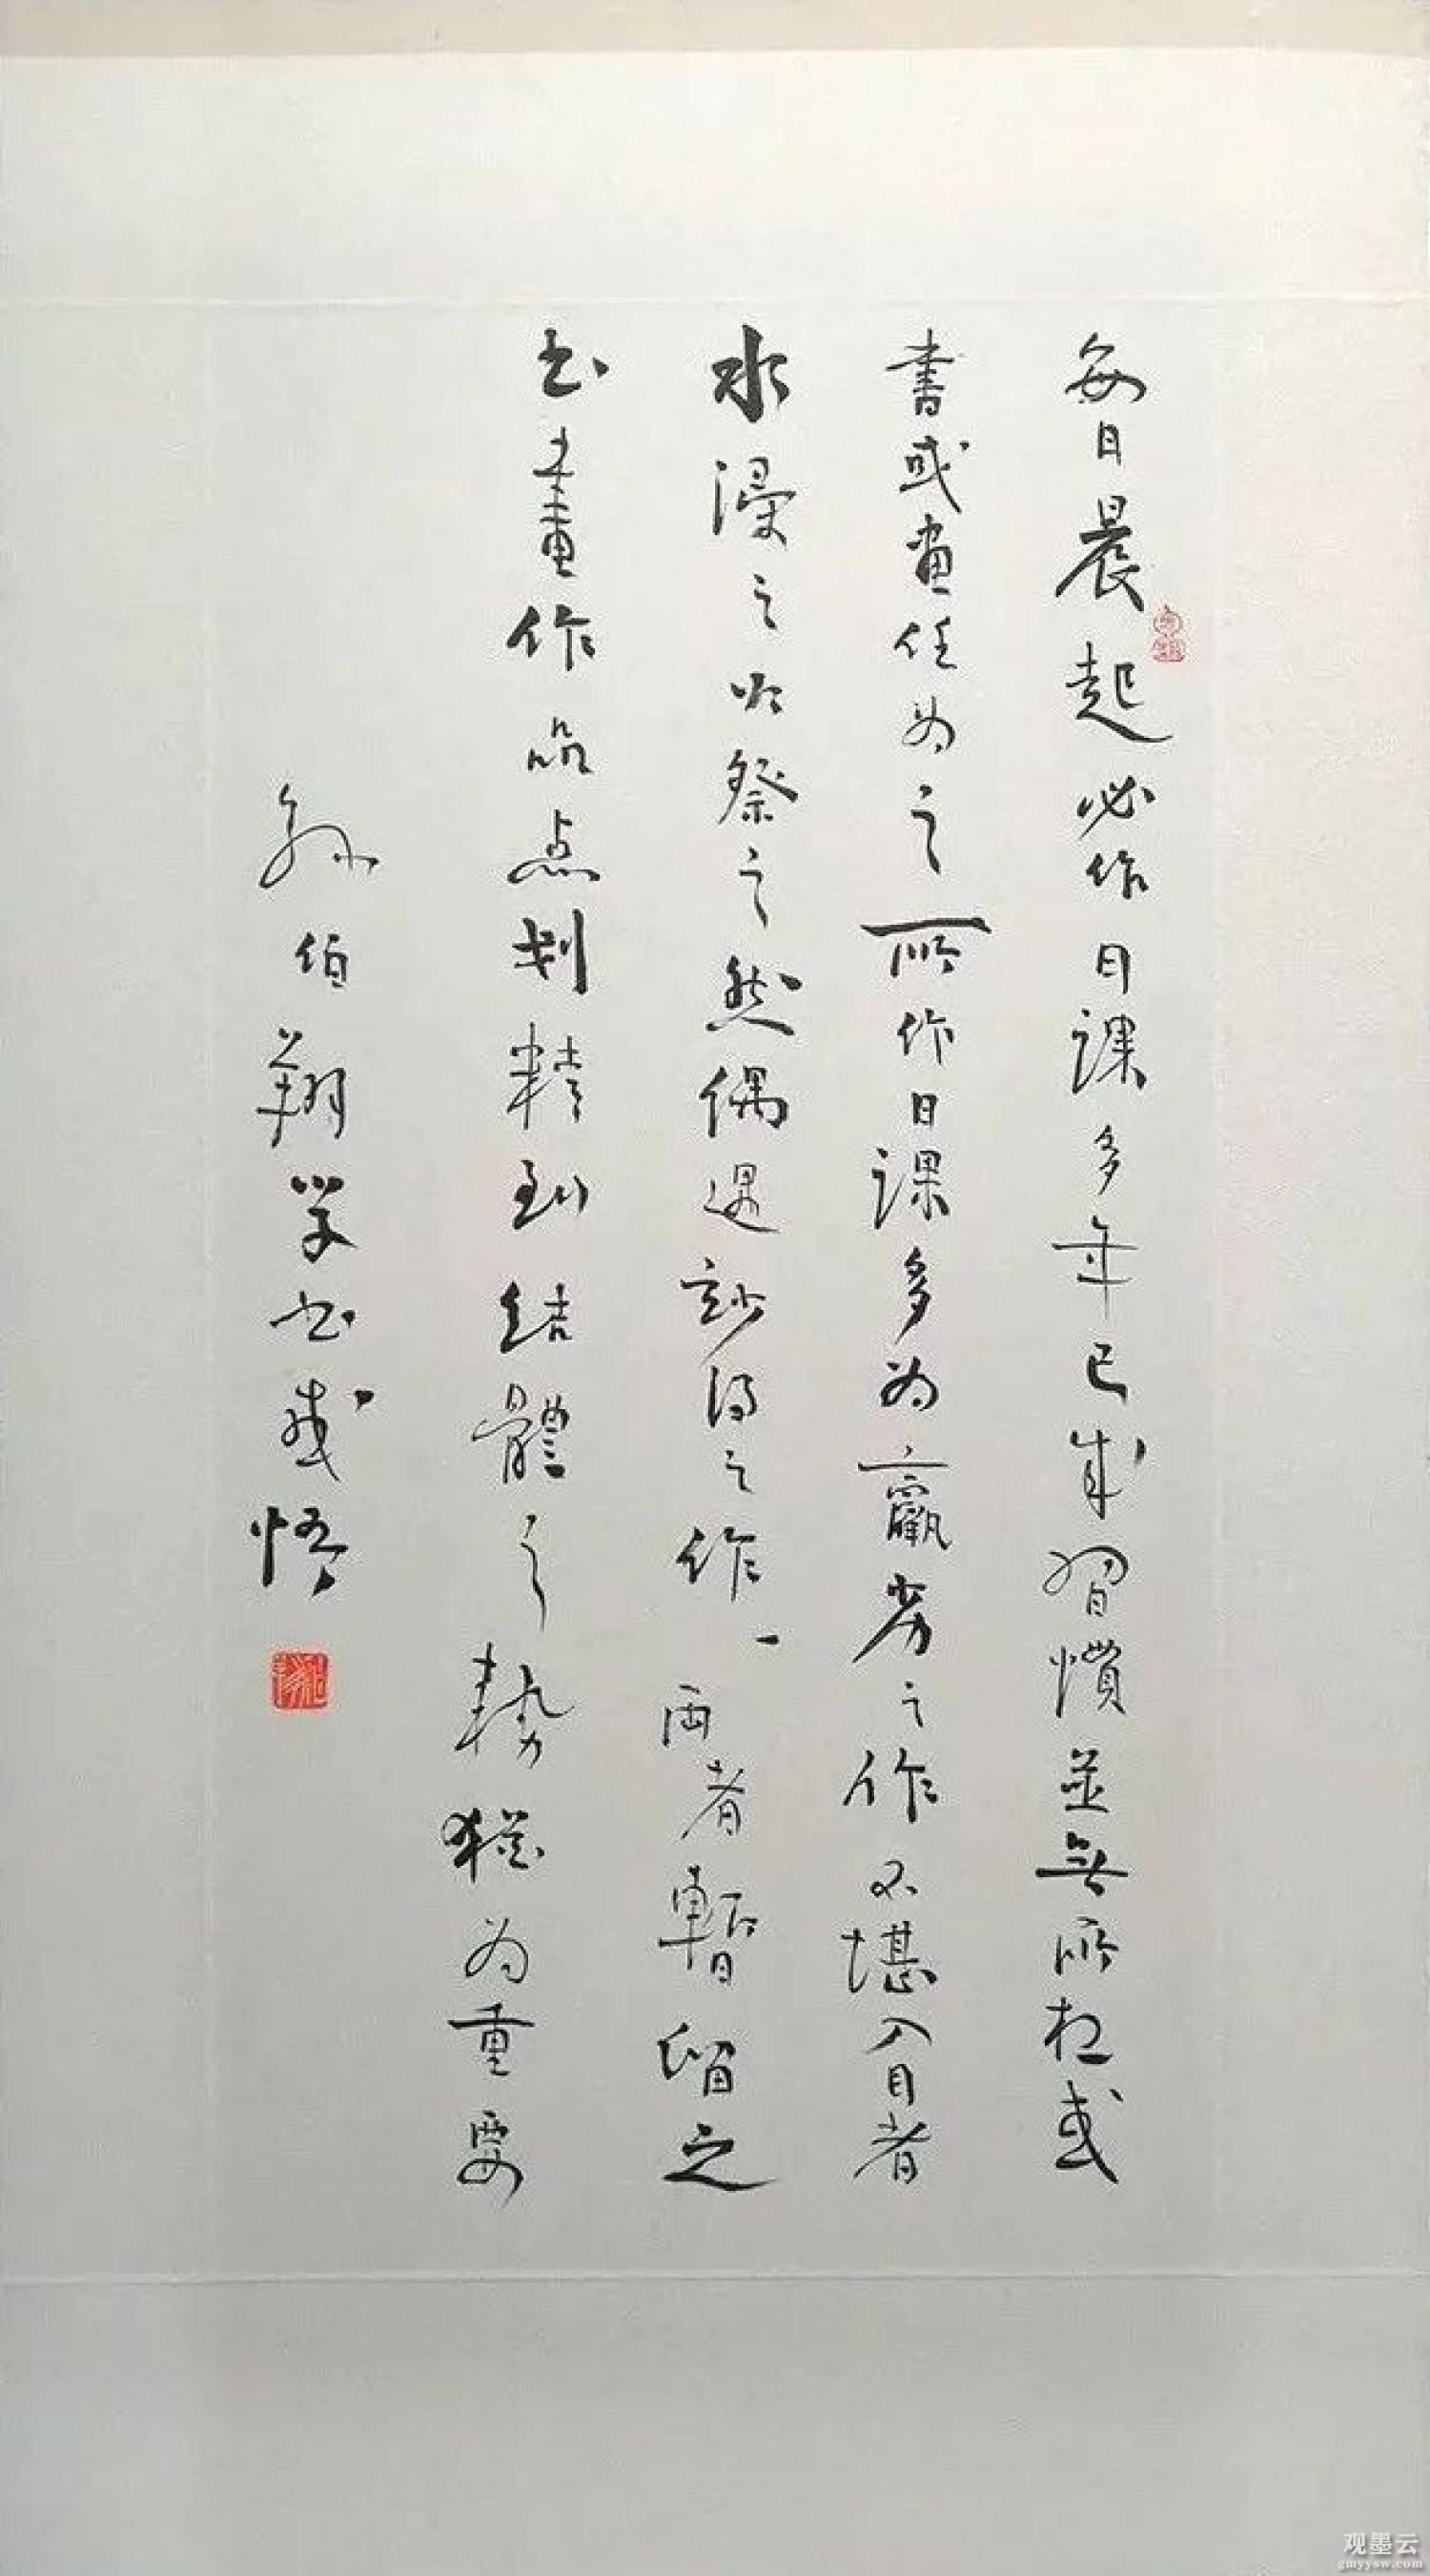 每日晨起必作日課多年已成習慣並無所拘或
書或畫任为之所作日課多为羸劣之作不堪入目者
水浸之火祭之然偶遇妙得之作两者暫留之
书畫作品点划精到結體之勢猶为重要
孙伯翔学书感悟
观墨云
gmyysw.com